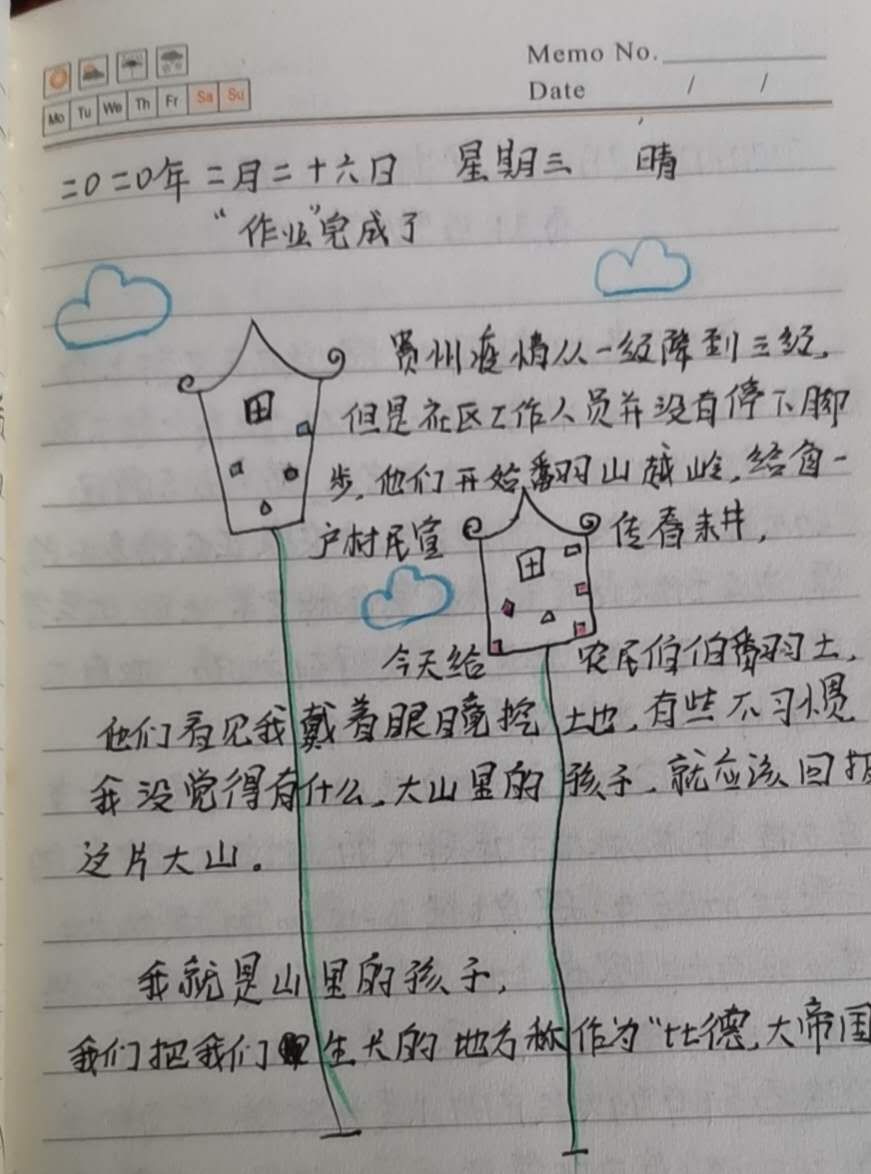 Memo No.
Date / /
Mo Tu We Th Fr Sa Su
二〇二〇年二月二十六日 星期三 晴
“作业”完成了
贵州疫情从一级降到三级,
但是社区工作人员并没有停下脚
步,他们开始翻山越岭,给每一
户村民宣传春耕,
今天给农民伯伯翻土,
他们看见我戴着眼镜挖土地,有些不习惯
我没觉得有什么,大山里的孩子,就应该回报
这片大山。
我就是山里的孩子,
我们把我们生长的地方称作为“比德,大帝国